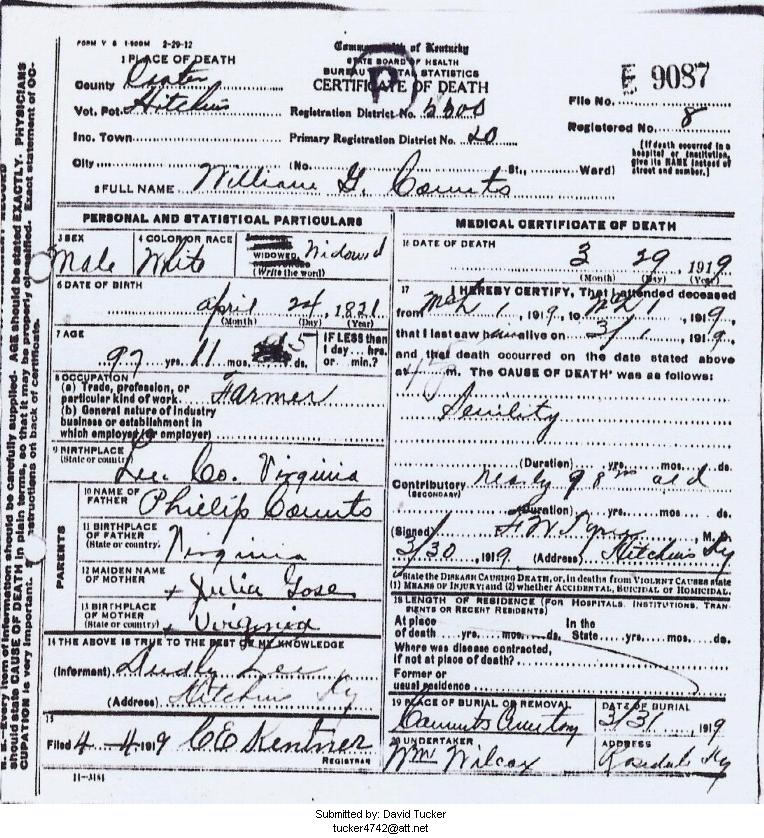 FORM V S 1-500M 2-29-12
Commonwealth of Kentucky
STATE BOARD OF HEALTH
BUREAU VITAL STATISTICS
CERTIFICATE OF DEATH
1 PLACE OF DEATH
County Carter
Vot. Pct. Hitchins
Inc. Town
City (No. St., Ward)
Registration District No. 5500
Primary Registration District No. 20
File No. 9087
Registered No. 8
[If death occurred in a hospital or institution, give its NAME instead of street and number.]
2 FULL NAME William G. Counts
PERSONAL AND STATISTICAL PARTICULARS
3 SEX Male
4 COLOR OR RACE White
WIDOWED Widowed
(Write the word)
6 DATE OF BIRTH
April 24, 1821
(Month) (Day) (Year)
7 AGE
97 yrs. 11 mos. 5 ds.
IF LESS than 1 day... hrs. or min.?
8 OCCUPATION
(a) Trade, profession, or particular kind of work Farmer
(b) General nature of industry business or establishment in which employed (or employer)
9 BIRTHPLACE
(State or country) Lee Co. Virginia
PARENTS
10 NAME OF FATHER Phillip Counts
11 BIRTHPLACE OF FATHER (State or country) Virginia
12 MAIDEN NAME OF MOTHER + Julia Gose
13 BIRTHPLACE OF MOTHER (State or country) + Virginia
14 THE ABOVE IS TRUE TO THE BEST OF MY KNOWLEDGE
(Informant) Dudly Lee
(Address) Hitchins Ky
15
Filed 4-4-1919 CE Kentner
REGISTRAR
11-3184
MEDICAL CERTIFICATE OF DEATH
16 DATE OF DEATH
3 29, 1919
(Month) (Day) (Year)
17 I HEREBY CERTIFY, That I attended deceased
from Mch 1, 1919, to Mch 1, 1919,
that I last saw him alive on 3/1, 1919,
and that death occurred on the date stated above
at m. The CAUSE OF DEATH* was as follows:
Senility
(Duration) yrs. mos. ds.
Contributory nearly 98 old
(SECONDARY)
(Duration) yrs. mos. ds.
(Signed) M. D.
3/30, 1919 (Address) Hitchins Ky
*State the DISEASE CAUSING DEATH, or, in deaths from VIOLENT CAUSES state
(1) MEANS OF INJURY; and (2) whether ACCIDENTAL, SUICIDAL or HOMICIDAL.
18 LENGTH OF RESIDENCE (FOR HOSPITALS, INSTITUTIONS, TRANSIENTS OR RECENT RESIDENTS)
At place of death yrs. mos. ds. In the State yrs. mos. ds.
Where was disease contracted, if not at place of death?
Former or usual residence
19 PLACE OF BURIAL OR REMOVAL Counts Cemetery
DATE OF BURIAL 3/31, 1919
20 UNDERTAKER Wm Wilcox
ADDRESS Rosedale Ky
N. B.—Every item of information should be carefully supplied. AGE should be stated EXACTLY. PHYSICIANS
should state CAUSE OF DEATH in plain terms, so that it may be properly classified. Exact statement of OCCUPATION is very important. See instructions on back of certificate.
Submitted by: David Tucker
tucker4742@att.net